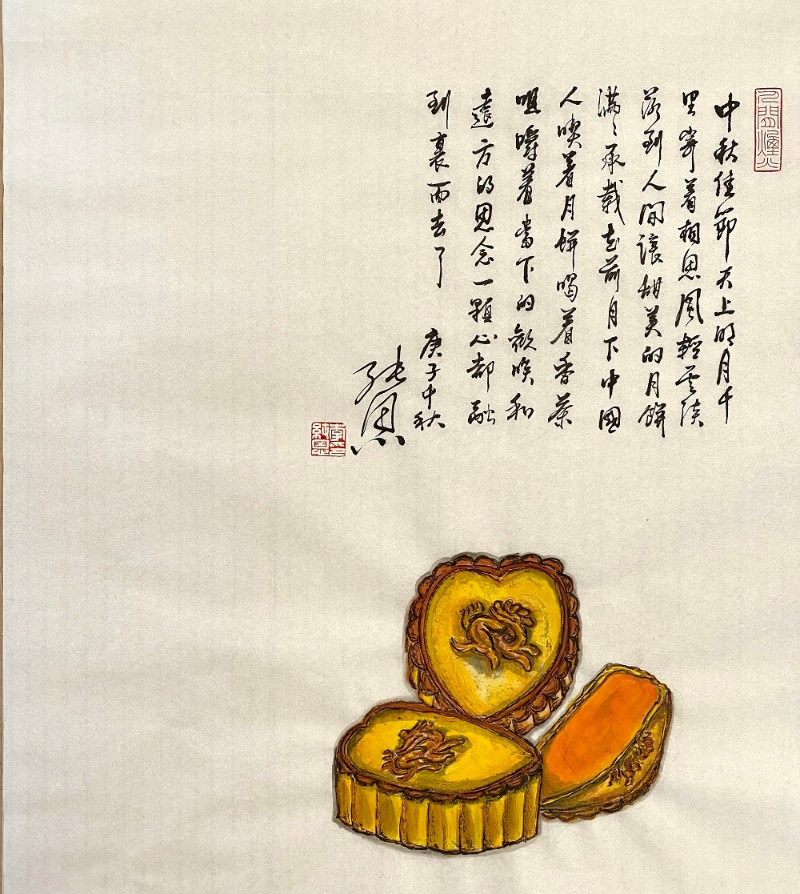 中秋佳節天上明月千
里寄着相思風輕雲淡
落到人間讓甜美的月餅
滿滿承載花前月下中國
人喫着月餅喝着香茶
咀嚼着當下的歡喉和
遠方的思念一顆心都融
到裏面去了
庚子中秋
純恩
人間煙火